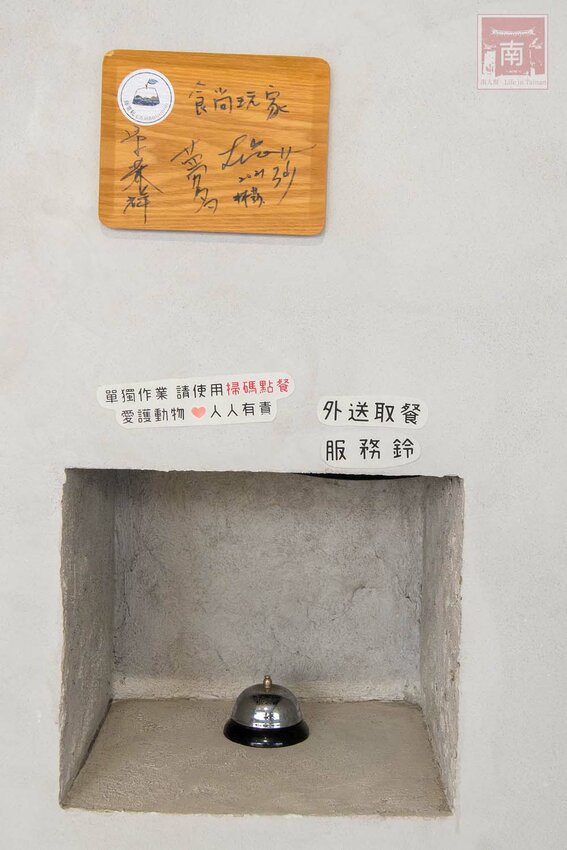 南
南人幫 Life in Tainan
食尚玩家
2021
單獨作業 請使用掃碼點餐
愛護動物 ❤ 人人有責
外送取餐
服務鈴